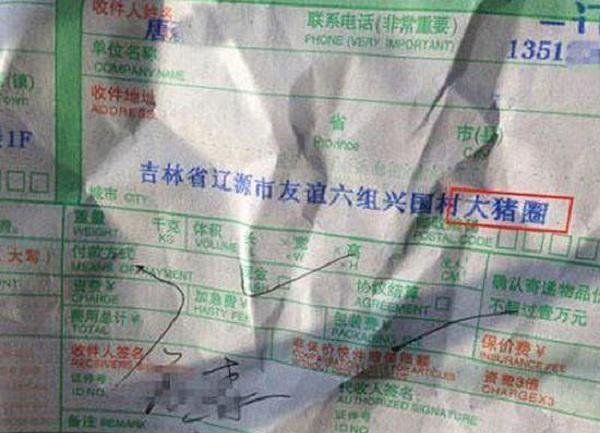 收件人姓名
NAME
唐
联系电话(非常重要)
PHONE (VERY IMPORTANT)
1351
单位名称
COMPANY NAME
收件地址
ADDRESS
省
Province
市(县)
1F
吉林省辽源市友谊六组兴国村大猪圈
城市 CITY
重量
WEIGHT
千克
KG
体积
VOLUME
长
宽
高
付款方式
MEANS OF PAYMENT
现金
协议结算
AGREEMENT
确认寄递物品价
不超过壹万元
资费¥
CHARGE
加急费¥
HASTY FEE
包装费
PACKAGING
费用总计¥
TOTAL
保价费¥
INSURANCE FEE
收件人签名
RECEIVER'S
资费3倍
CHARGEX3
证件号
ID NO.
代收人签名
AUTHORIZED SIGNATURE
证件号
ID NO.
备注 REMARK